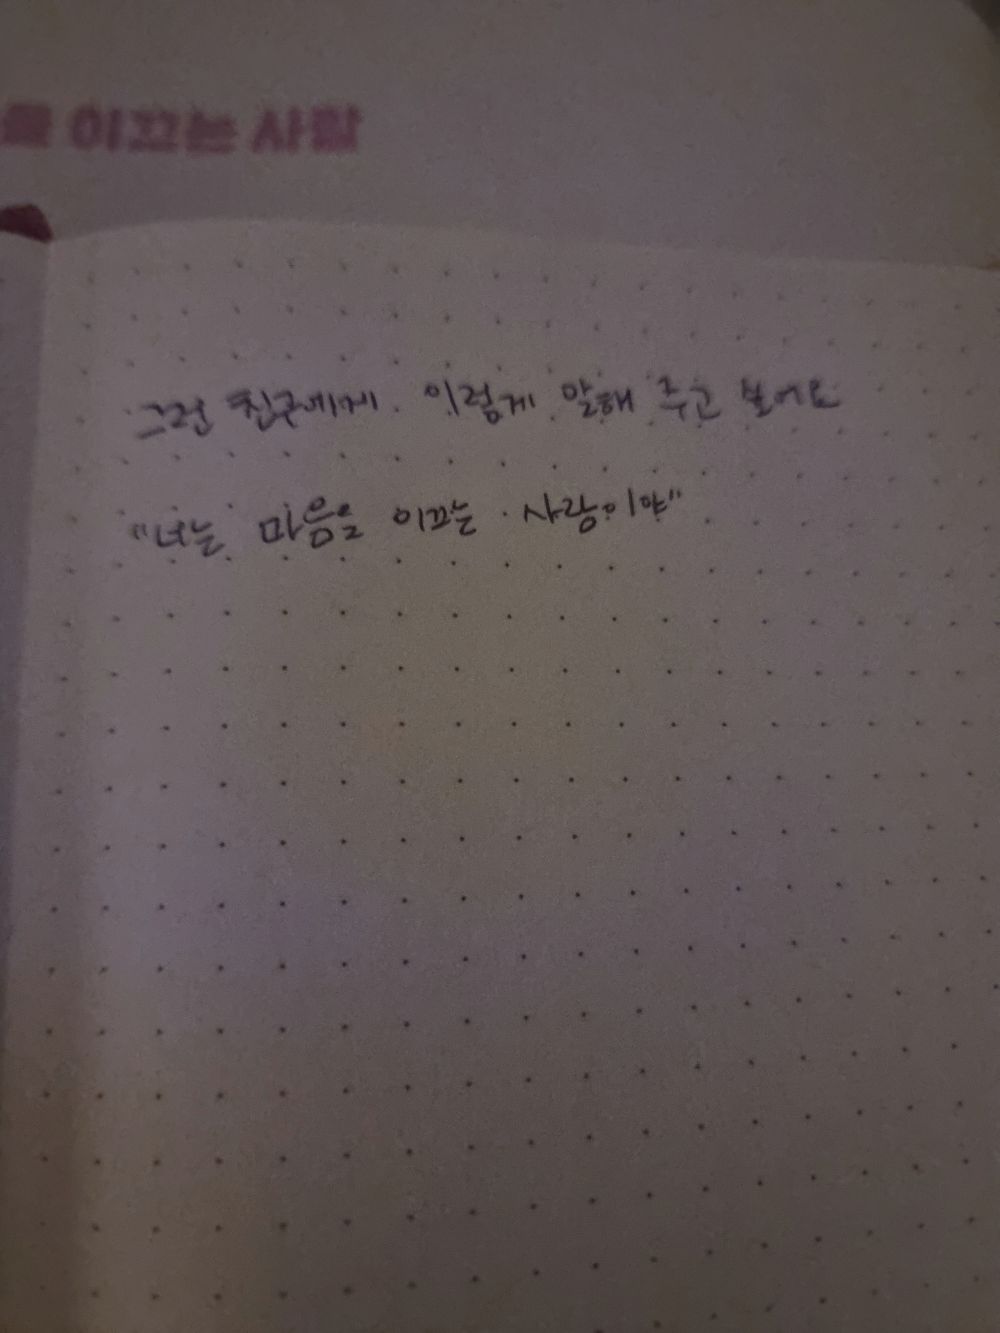 이끄는 사람
그런 친구에게 이렇게 말해 주고 싶어요
"너는 마음을 이끄는 사람이야"